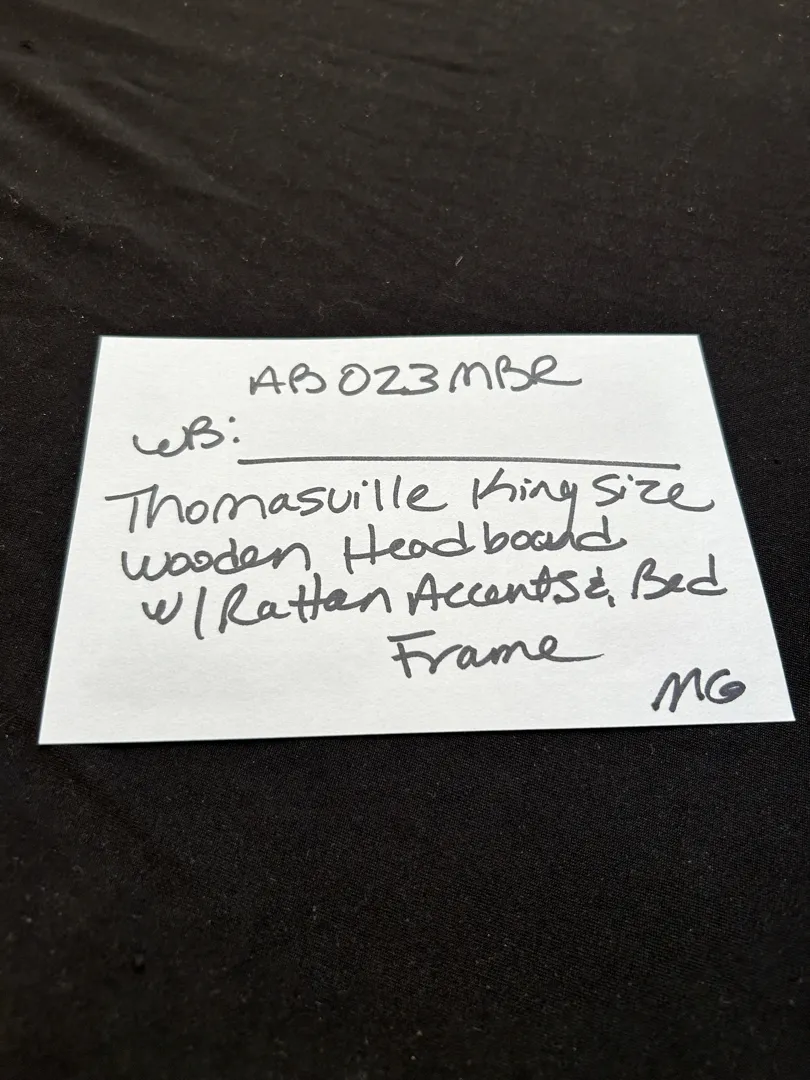 AB023MBR
WB:
Thomasville King Size
Wooden Headboard
w/ Rattan Accents & Bed
Frame
MG